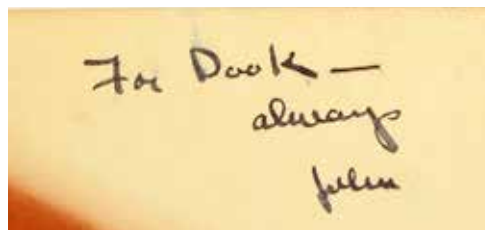 For Dook —
always
John